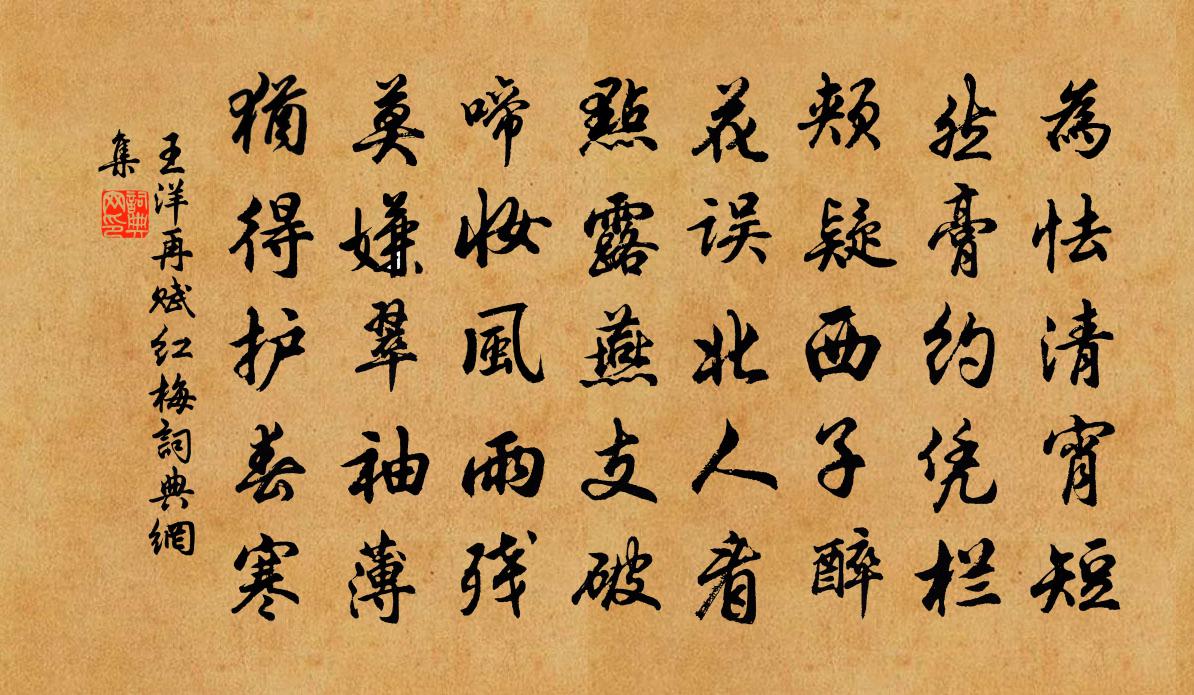 為怯清宵短
然膏約凭栏
頰疑西子醉
花误北人看
點露燕支破
啼妝風雨残
莫嫌翠袖薄
猶得护春寒
王洋再赋红梅詞典網
集
詞典
网印